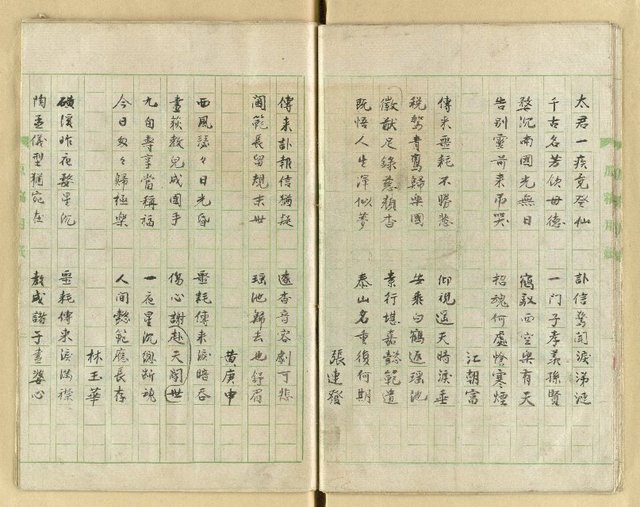 太君一疾竟登仙 訃信驚聞淚涕漣
千古名芳欽母德 一門子孝美孫賢
婺沉南國光無日 鶴馭西空樂有天
告別靈前來吊哭 招魂何處怜寒煙
江朝富
傳來噩耗不勝悲 仰視遙天時淚垂
稅駕青鸞歸樂國 安乘白鶴返瑤池
徽猷足錄蒼顏杳 素行堪嘉懿範遺
既悟人生渾似夢 泰山名重復何期
張連發
傳來訃報信猶疑 遠杳音容劇可悲
閫範長留規末世 瑤池歸去也舒眉
黃庚申
西風瑟々日光昏 噩耗傳來淚暗吞
畫荻教兒成國手 傷心謝赴天閽世
九旬壽享當稱福 一夜星沉俱斷魂
今日匆々歸極樂 人間懿範應長存
林玉華
磺溪昨夜婺星沉 噩耗傳來淚滿襟
陶孟儀型猶宛在 教成諸子盡婆心